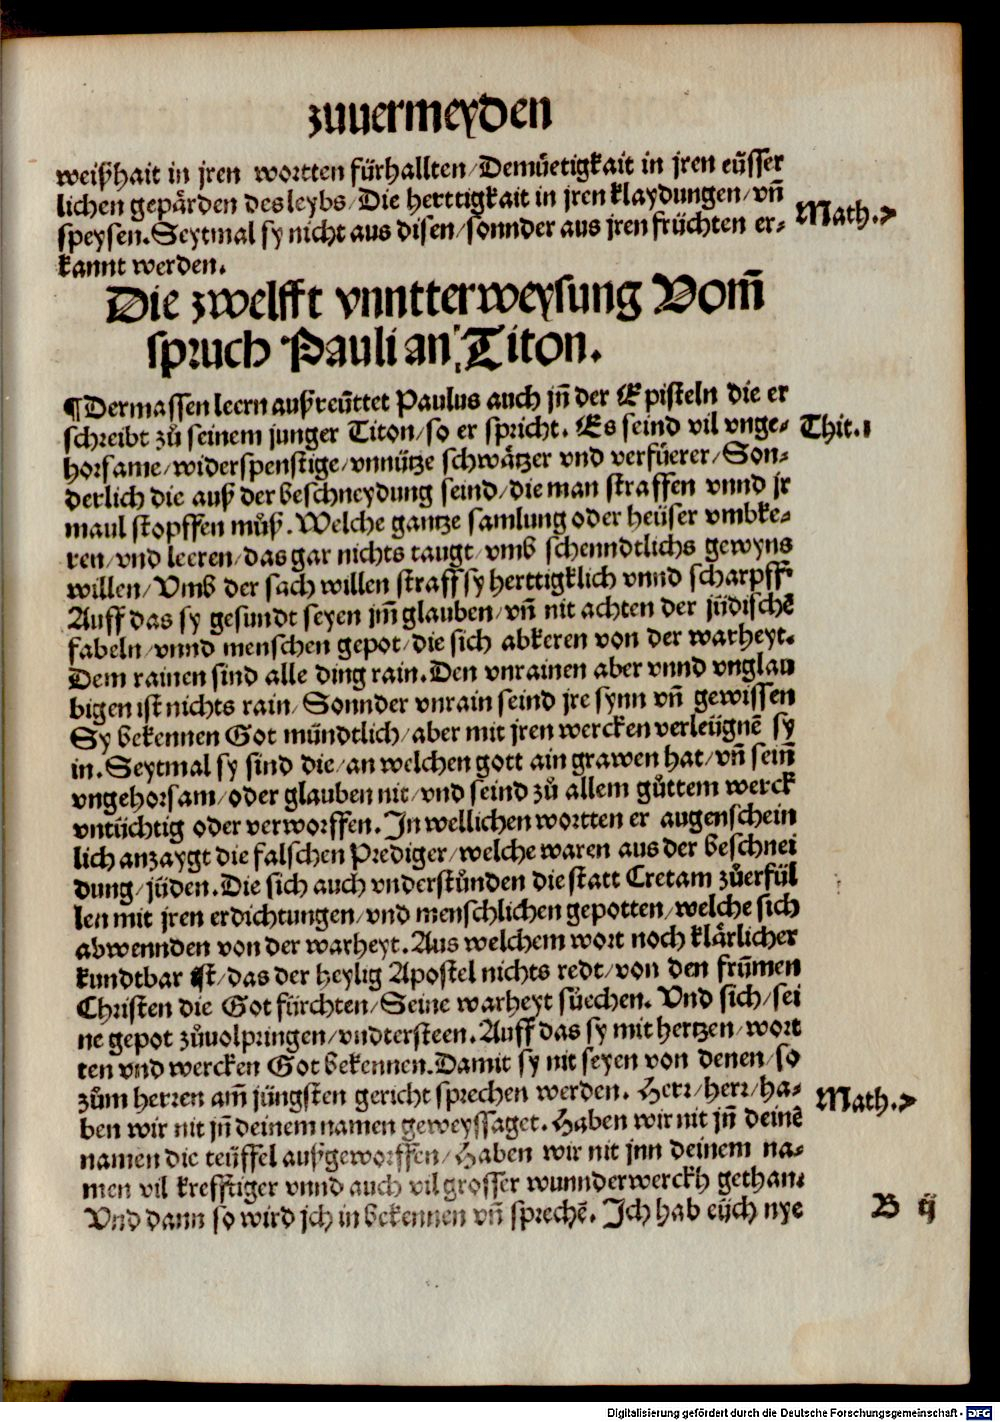 zuuermeyden
weißhait in jren wortten fürhallten/Demüetigkait in jren eüsser
lichen gepärden des leybs/Die herttigkait in jren klaydungen/vn̄
speysen.Seytmal sy nicht aus disen/sonnder aus jren früchten er⸗
kannt werden.
Math.7
Die zwelfft vnntterweysung Vom̄
spruch Pauli an Titon.
¶Dermassen leern außreüttet Paulus auch jn̄ der Episteln die er
schreibt zů seinem junger Titon/so er spricht. Es seind vil vnge⸗
Thit.1
horsame/widerspenstige/vnnütze schwätzer vnd verfüerer/Son⸗
derlich die auß der beschneydung seind/die man straffen vnnd jr
maul stopffen můß.Welche gantze samlung oder heüser vmbke⸗
ren/vnd leeren/das gar nichts taugt/vmb schenndtlichs gewyns
willen/Vmb der sach willen straff sy herttigklich vnnd scharpff
Auff das sy gesundt seyen jm̄ glauben/vn̄ nit achten der jüdischē
fabeln/vnnd menschen gepot/die sich abkeren von der warheyt.
Dem rainen sind alle ding rain.Den vnrainen aber vnnd vnglau
bigen ist nichts rain/Sonnder vnrain seind jre synn vn̄ gewissen
Sy bekennen Got mündtlich/aber mit jren wercken verleügnē sy
in.Seytmal sy sind die/an welchen gott ain grawen hat/vn̄ sein̄
vngehorsam/oder glauben nit/vnd seind zů allem gůttem werck
vntüchtig oder verworffen.In wellichen wortten er augenschein
lich anzaygt die falschen Prediger/welche waren aus der beschnei
dung/jüden.Die sich auch vnderstůnden die statt Cretam zůerfül
len mit jren erdichtungen/vnd menschlichen gepotten/welche sich
abwennden von der warheyt.Aus welchem wort noch klärlicher
kundtbar ist/das der heylig Apostel nichts redt/von den frümen
Christen die Got fürchten/Seine warheyt süechen. Vnd sich/sei
ne gepot zůuolpringen/vndtersteen.Auff das sy mit hertzen/wort
ten vnd wercken Got bekennen.Damit sy nit seyen von denen/so
zům herren am̄ jüngsten gericht sprechen werden. Herr/herr/ha⸗
Math.7
ben wir nit jn̄ deinem namen geweyssaget.Haben wir nit jn̄ deinē
namen die teüffel außgeworffen/Haben wir nit jnn deinem na⸗
men vil krefftiger vnnd auch vil grosser wunnderwerckh gethan.
Vnd dann so wird jch in bekennen vn̄ sprechē. Ich hab eüch nye
B ij
Digitalisierung gefördert durch die Deutsche Forschungsgemeinschaft - DFG